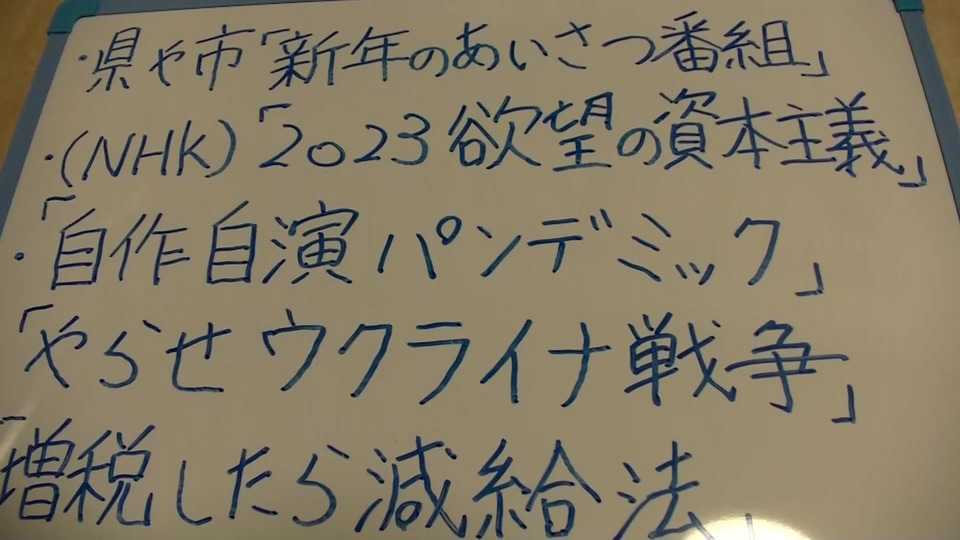 ・県や市「新年のあいさつ番組」
・(NHK)「2023欲望の資本主義」
・「自作自演パンデミック」
「やらせウクライナ戦争」
「増税したら減給法」